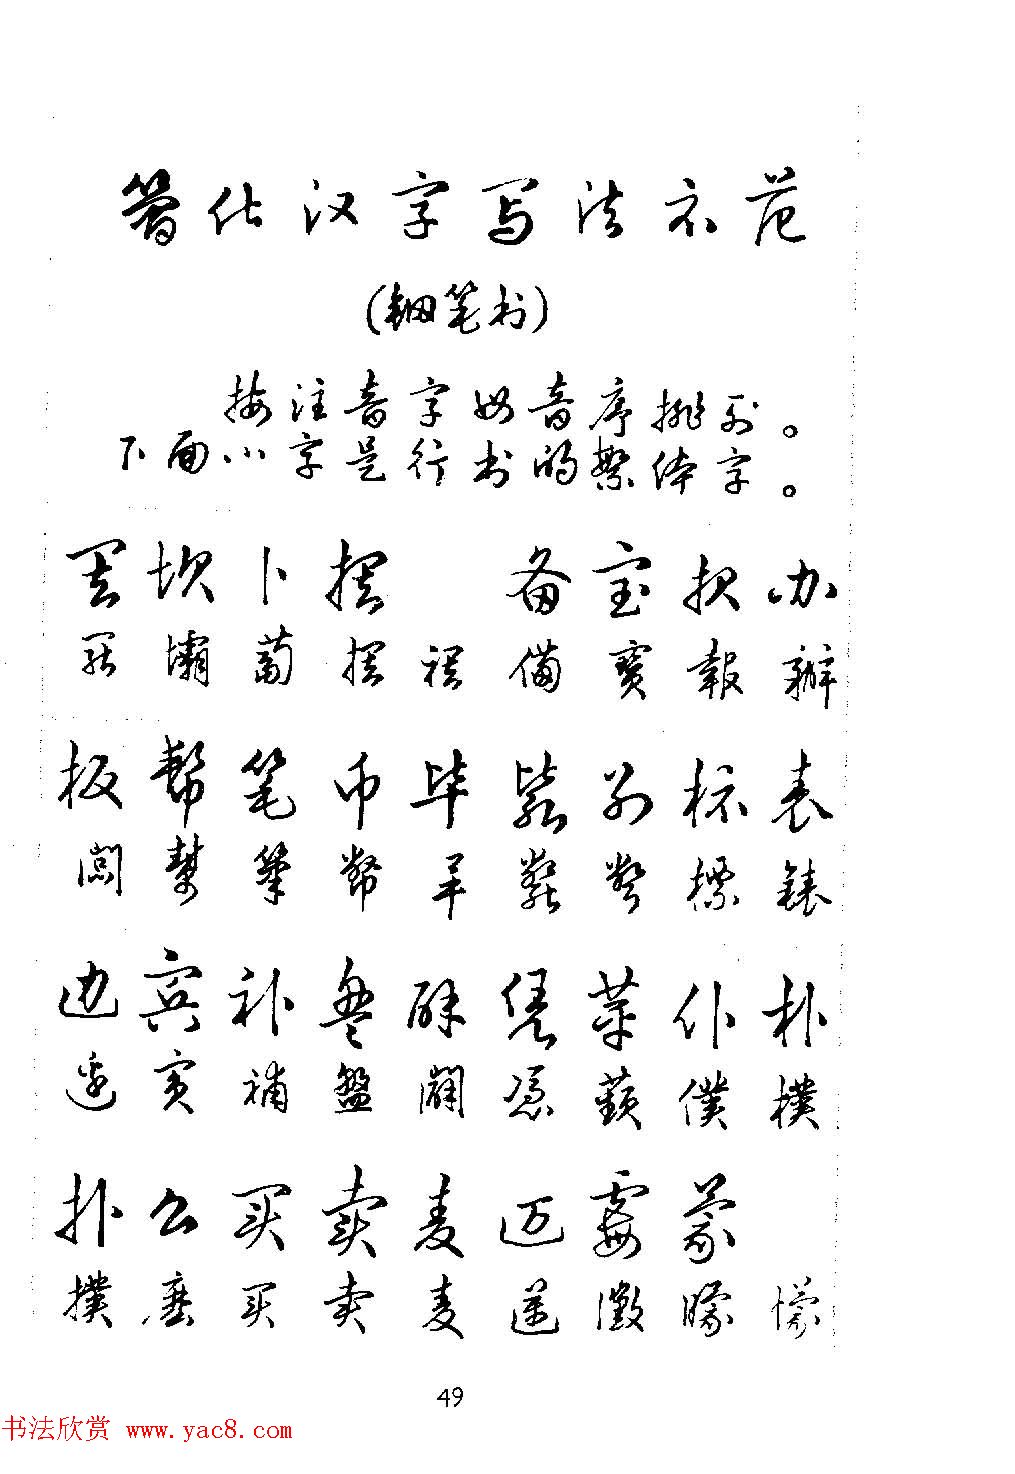 简化汉字写法示范
(钢笔书)
按注音字母音序排列。
下面小字是行书的繁体字。
罢 坝 卜 摆 备 宝 报 办
罷 壩 蔔 擺 襬 備 寶 報 辦
板 帮 笔 币 毕 鳖 别 标 表
闆 幫 筆 幣 畢 鱉 彆 標 錶
边 宾 补 盘 辟 凭 苹 仆 朴
邊 賓 補 盤 闢 憑 蘋 僕 樸
扑 么 买 卖 麦 迈 霉 蒙
撲 麼 買 賣 麥 邁 黴 矇 懞
49
书法欣赏 www.yac8.com